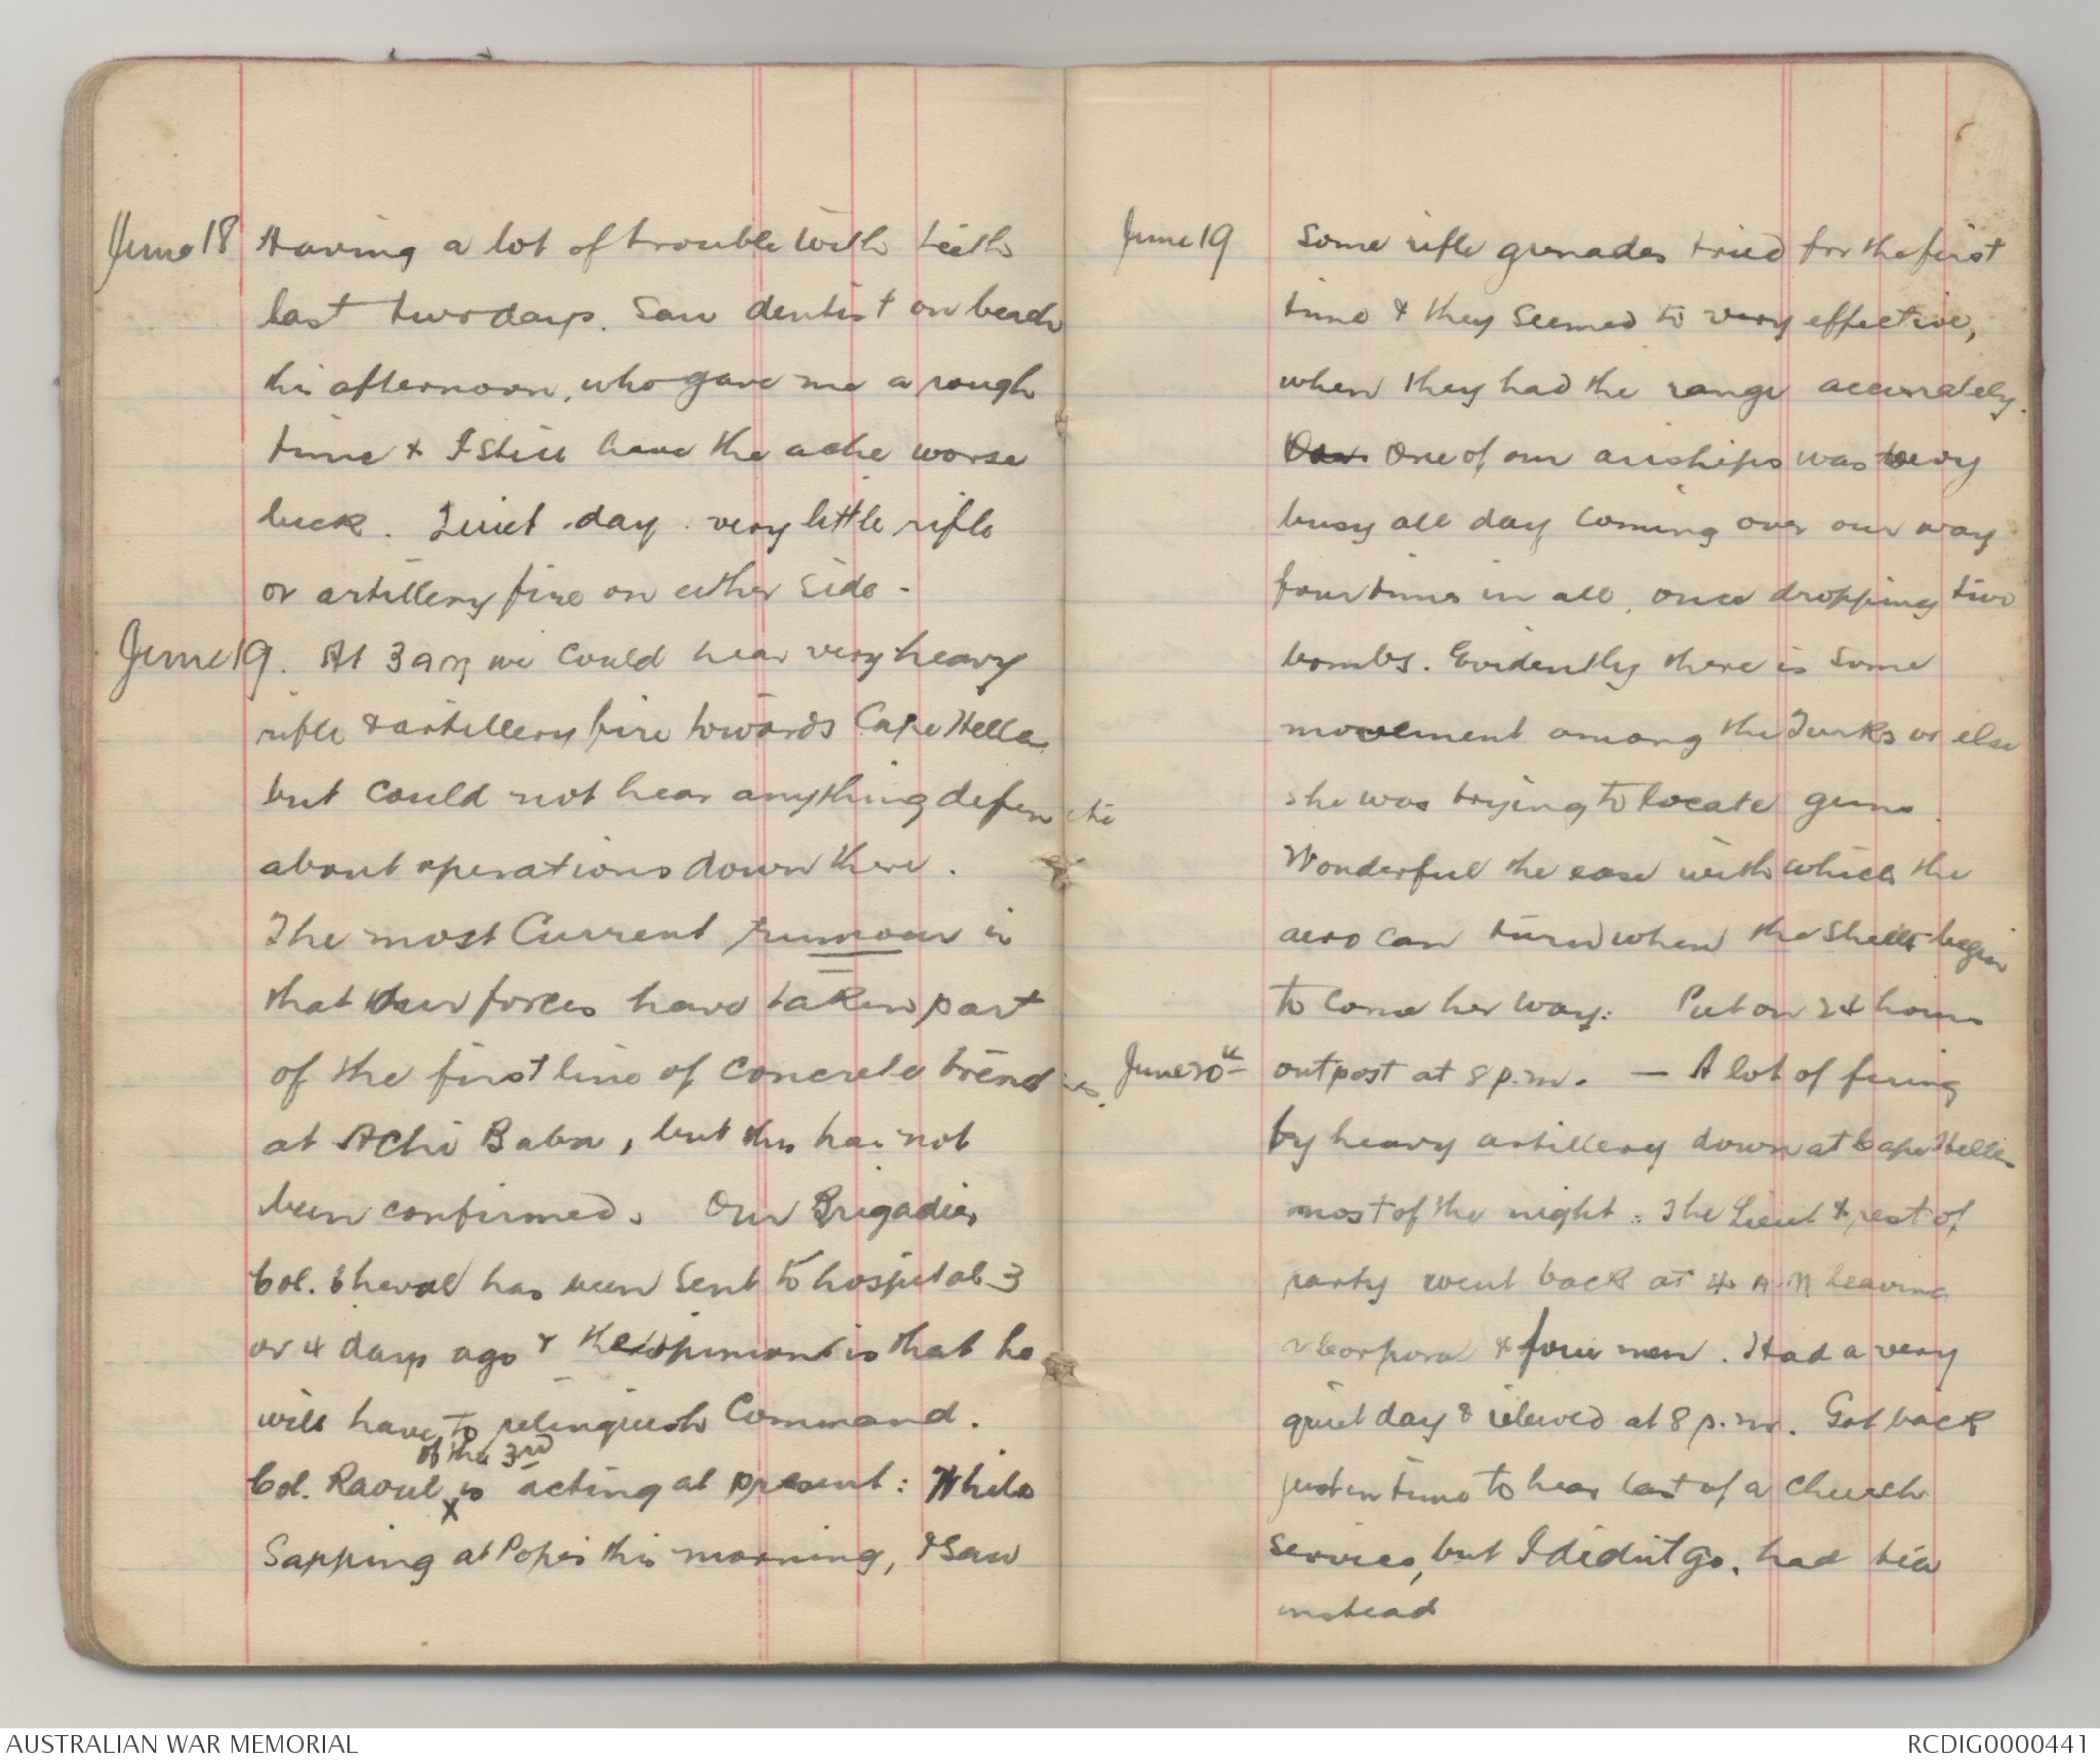 June 18 Having a lot of trouble with teeth
last two days. Saw dentist on beach
this afternoon, who gave me a rough
time & I still have the ache worse
luck. Quiet day. very little rifle
or artillery fire on either side -
June 19. At 3 am we could hear very heavy
rifle & artillery fire towards Cape Helles
but could not hear anything definite
about operations down there.
The most current rumour is
that our forces have taken part
of the first line of concrete trenches
at Achi Baba, but this has not
been confirmed. Our Brigadier
Col. Cheval has been sent to hospital 3
or 4 days ago & the opinion is that he
will have to relinquish Command.
of the 3rd
Col. Raoul x is acting at present: While
Sapping at Popes this morning, I saw
June 19 Some rifle grenades tried for the first
time & they seemed to very effective,
when they had the range accurately.
One of our airships was very
busy all day coming over our way
four times in all, once dropping two
bombs. Evidently there is some
movement among the Turks or else
she was trying to locate guns.
Wonderful the ease with which the
aero can turn when the shells begin
to come her way. Put on 24 hours
June 20th outpost at 8 p.m. - A lot of firing
by heavy artillery down at Cape Helles
most of the night. The Lieut & rest of
party went back at 4 A.M leaving
Corporal & four men. Had a very
quiet day & relieved at 8 p.m. Got back
just in time to hear last of a Church
service, but I didn't go, had tea
instead
AUSTRALIAN WAR MEMORIAL
RCDIG0000441